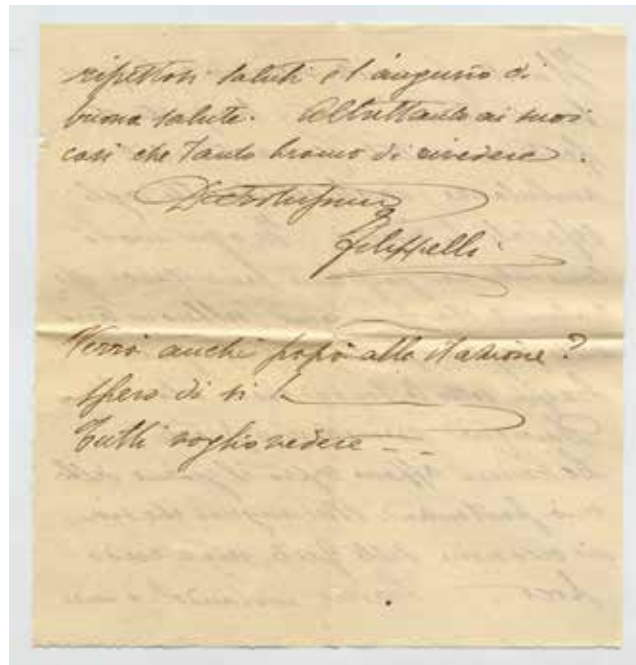 rispettosi saluti e l'augurio di
buona salute. Altrettanto ai suoi
cari che tanto bramo di rivedere.
Filippelli
Verrà anche papà alla stazione?
spero di si!
Tutti voglio vedere - -